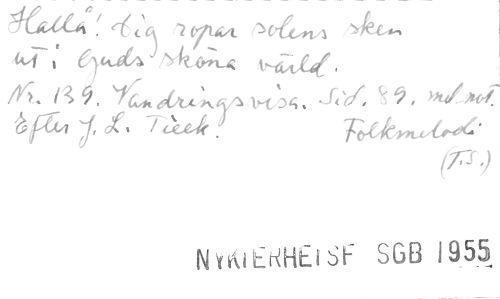 Hallå! Dig ropar solens sken
ut i Guds sköna värld.
Nr. 139. Vandringsvisa. Sid. 89. md not.
Efter J. L. Tieck. Folkmelodi
(T.S.)
NYKTERHETSF SGB 1955